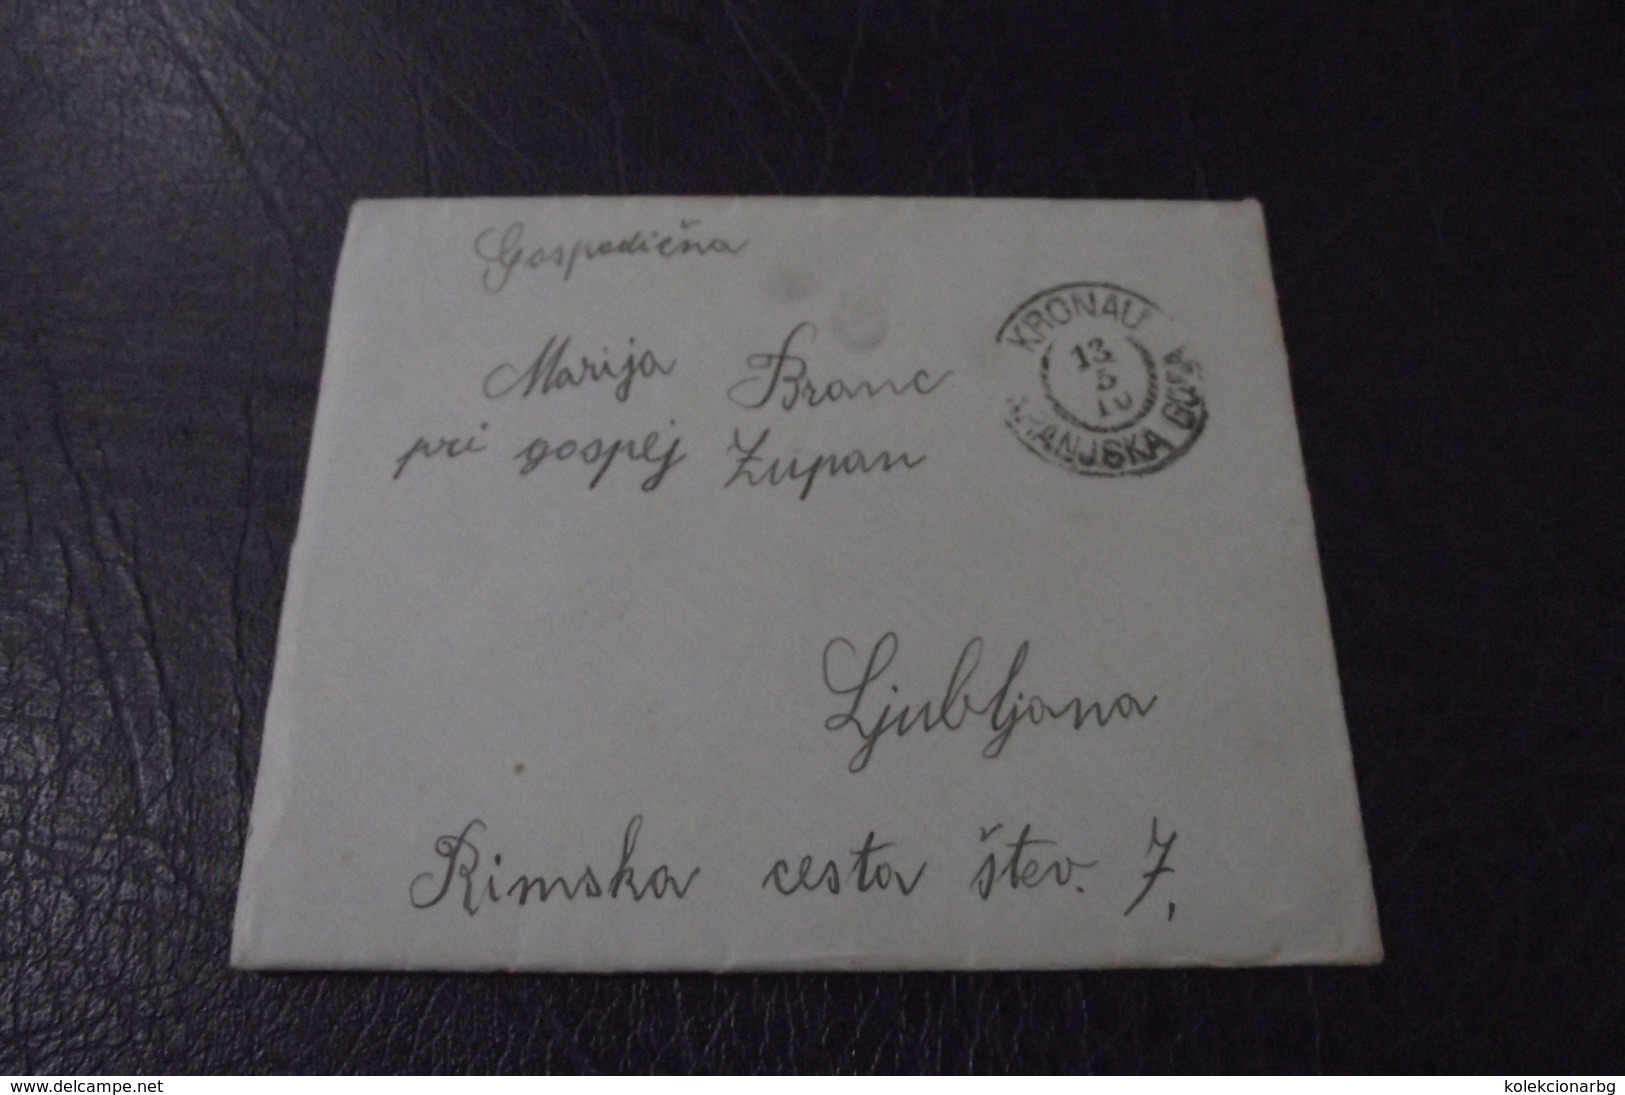 Gospodična
Marija Branc
pri gospej Zupan
KRONAU
13
5
KRANJSKA GORA
Ljubljana
Rimska cesta štev. 7,
www.delcampe.net
kolekcionarbg